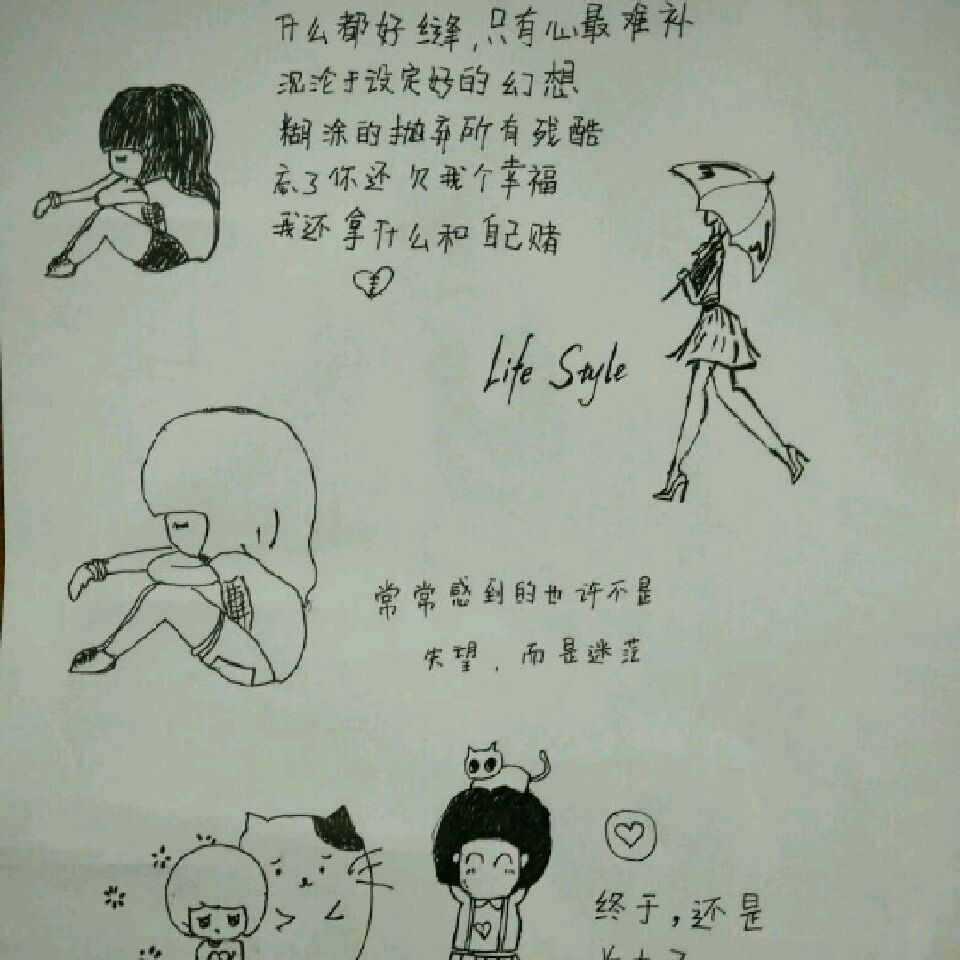 什么都好缝,只有心最难补
沉沦于设定好的幻想
糊涂的抛弃所有残酷
忘了你还欠我个幸福
我还拿什么和自己赌
Life Style
常常感到的也许不是
失望,而是迷茫
终于,还是